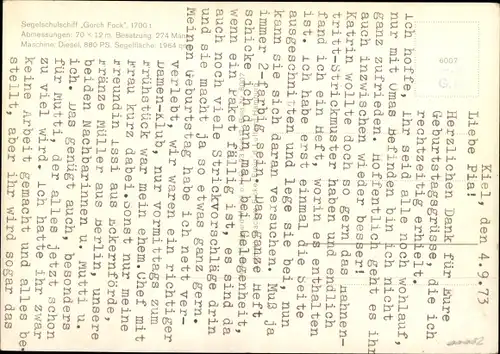 Segelschulschiff „Gorch Fock", 1700 t
Abmessungen: 70 × 12 m. Besatzung: 274 Mann
Maschine: Diesel, 880 PS. Segelfläche: 1964 q
6007
Kiel, den 4.9.73
Liebe Pia!
Herzlichen Dank für Eure
Geburtstagsgrüsse, die ich
rechtzeitig erhielt.
Ich hoffe, Ihr seid alle noch wohlauf,
nur mit Omas Befinden bin ich nicht
ganz zufrieden. Hoffentlich geht es ihr
auch inzwischen wieder besser!
Katrin wollte doch so gern das Hahnen-
tritt-Strickmuster haben und endlich
fand ich ein Heft, worin es enthalten
ist. Ich habe erst einmal die Seite
ausgeschnitten und lege sie bei, nun
kann sie sich daran versuchen. Muß ja
immer 2-farbig sein. Das ganze Heft
schicke ich dann mal bei Gelegenheit,
wenn ein Paket fällig ist, es sind da
auch noch viele Strickvorschläge drin
und sie macht ja so etwas ganz gern.
Meinen Geburtstag habe ich nett ver-
verlebt, wir waren ein richtiger
Damen-Klub, nur vormittags zum
Frühstück war mein ehem. Chef mit
Frau kurz dabei. Sonst nur meine
Freundin Issi aus Eckernförde,
Franze Müller aus Berlin, unsere
beiden Nachbarinnen u. Mutti u.
ich. Das genügt auch, besonders
für Mutti, der alles jetzt schon
zu viel wird. Ich hatte ihr zwar
keine Arbeit gemacht und alles be-
stellt, aber ihr wird sogar das